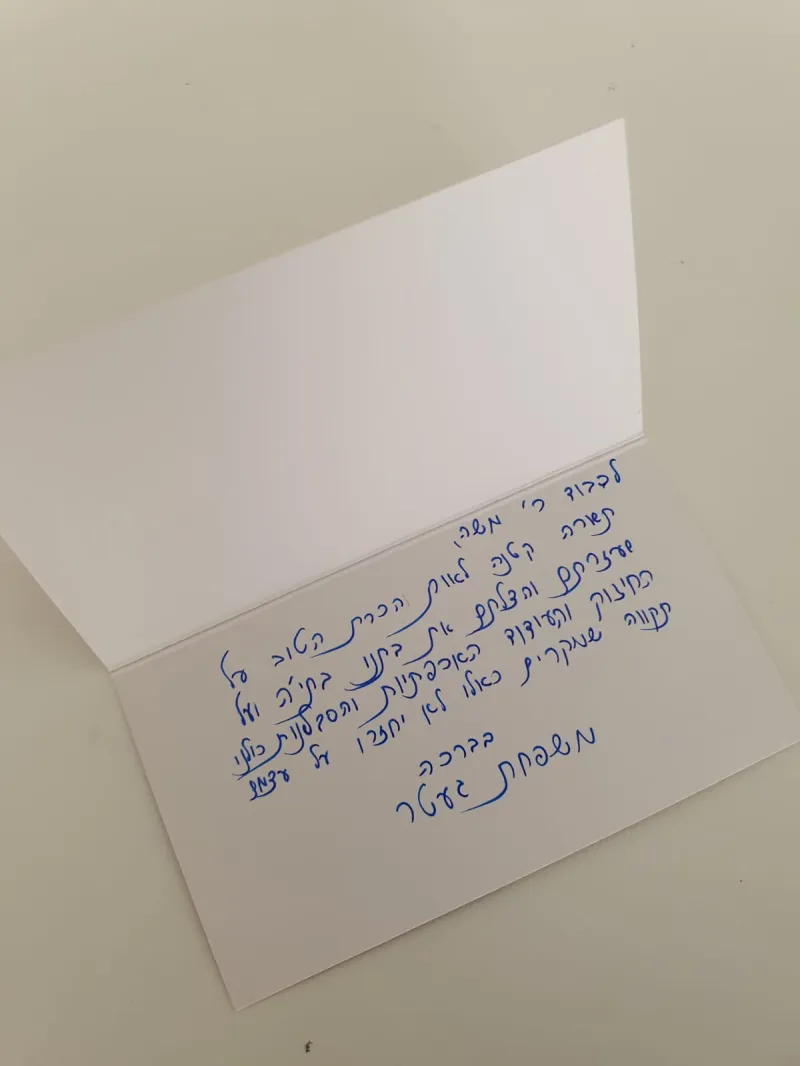 לכבוד ר' משה,
תשורה קטנה לאות הכרת הטוב על
שעזרתם והצלתם את בתנו בתי'ה ועל
החיזוק והעידוד האכפתיות והסבלנות כולנו
תקווה שמקרים כאלו לא יחזרו על עצמם
בברכה
משפחת געטר